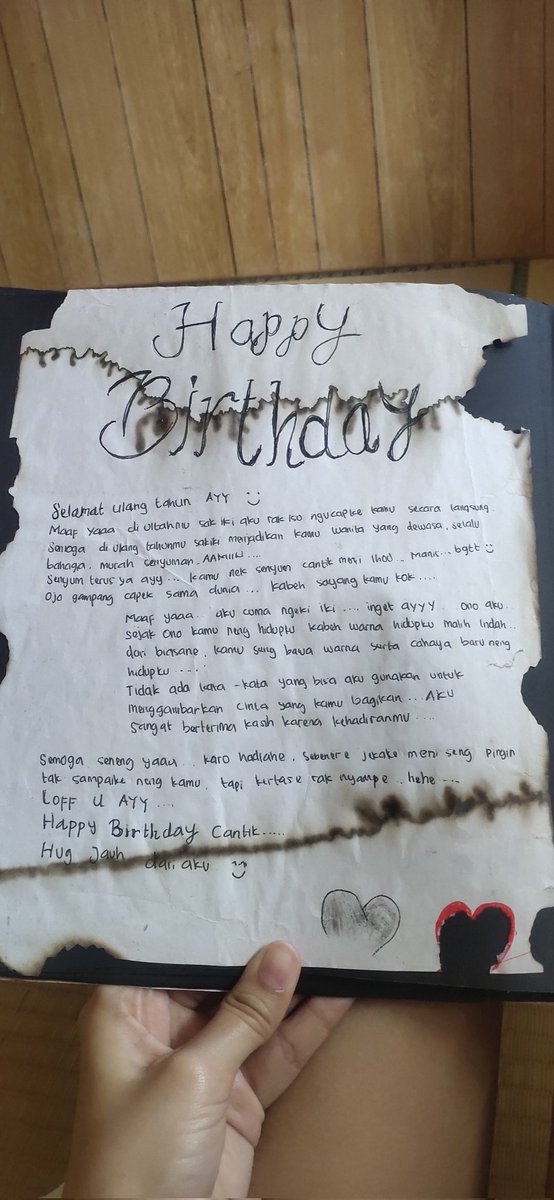 Happy
Birthday
Selamat ulang tahun AYY :)
Maaf yaaa di ultahmu sak iki aku rak iso ngucapke kamu secara langsung.
Semoga di ulang tahunmu sakiki menjadikan kamu wanita yang dewasa, selalu
bahagia, murah senyuman, AAMIIN ....
Senyum terus ya ayy ... kamu nek senyum cantik meni lhoo.. manis... bgtt :)
Ojo gampang capek sama dunia ... kabeh sayang kamu kok ....
Maaf yaaa... aku cuma ngeki iki .... inget ayyy. ono aku.
Sejak ono kamu neng hidupku kabeh warna hidupku malih Indah..
dari biasane, kamu seng bawa warna serta cahaya baru neng
hidupku ....
Tidak ada kata-kata yang bisa aku gunakan untuk
menggambarkan cinta yang kamu bagikan ... AKU
Sangat berterima kasih karena kehadiranmu ....
Semoga seneng yaaa.. karo hadiahe, Sebenere jekake meni seng pingin
tak sampaike neng kamu, tapi kertase rak nyampe.. hehe ....
LOFF U AYY ....
Happy Birthday Cantik.....
Hug Jauh dari aku :)